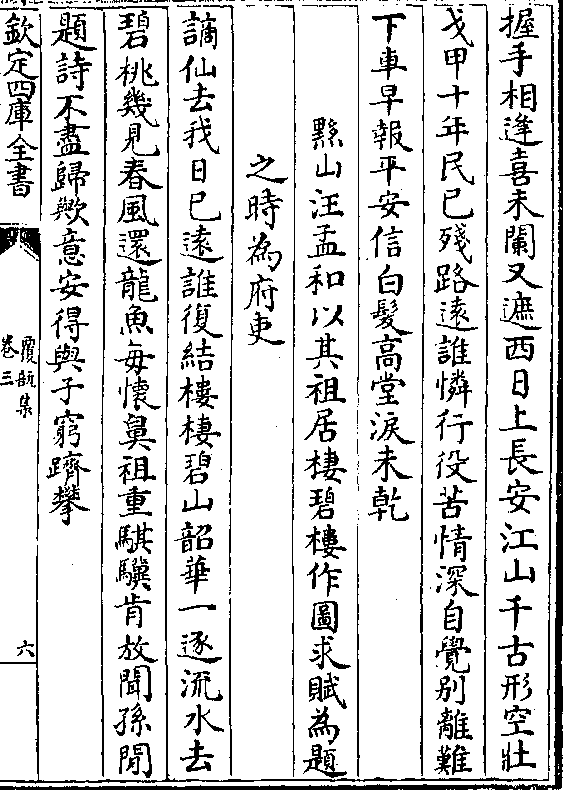 握手相逢喜未闌又遮西日上長安江山千古形空壯
戈甲十年民已殘路遠誰憐行役苦情深自覺别離難
下車早報平安信白髮高堂淚未乾
黟山汪孟和以其祖居樓碧樓作圖求賦為題
之時為府吏
謫仙去我日已遠誰復結樓棲碧山韶華一逐流水去
碧桃幾見春風還龍魚每懷舅祖重騏驥肯放聞孫閒
題詩不盡歸歟意安得與子窮躋攀
欽定四庫全書
覆瓿集
卷三
六